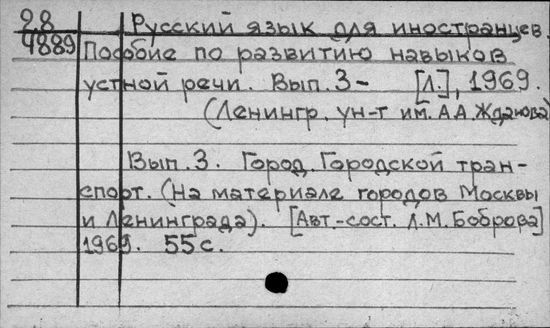 28 Русский язык для иностранцев.
4889 Пособие по развитию навыков
устной речи. Вып. 3 – [Л.], 1969.
(Ленингр. ун-т им. А.А. Жданова)
Вып. 3. Город. Городской тран-
спорт. (На материале городов Москвы
и Ленинграда). [Авт.-сост. Л.М. Боброва]
1969. 55 с.